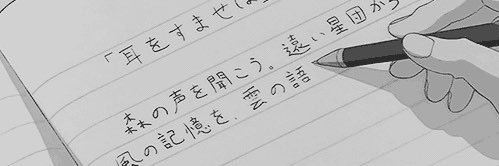 「耳をすませ
森の声を聞こう。遠い星団から
風の記憶を、雲の語